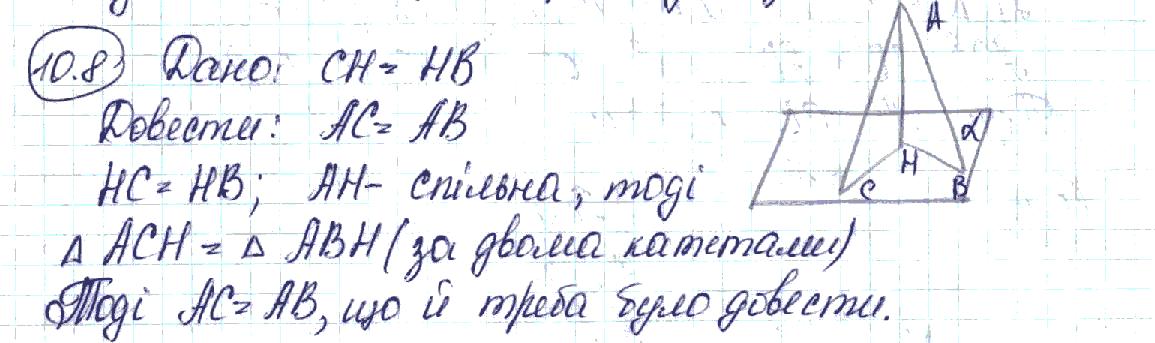 10.8 Дано: CH = HB
Довести: AC = AB
HC = HB; AH - спільна, тоді
△ ACH = △ ABH (за двома катетами)
Тоді AC = AB, що й треба було довести.
A
α
H
C
B